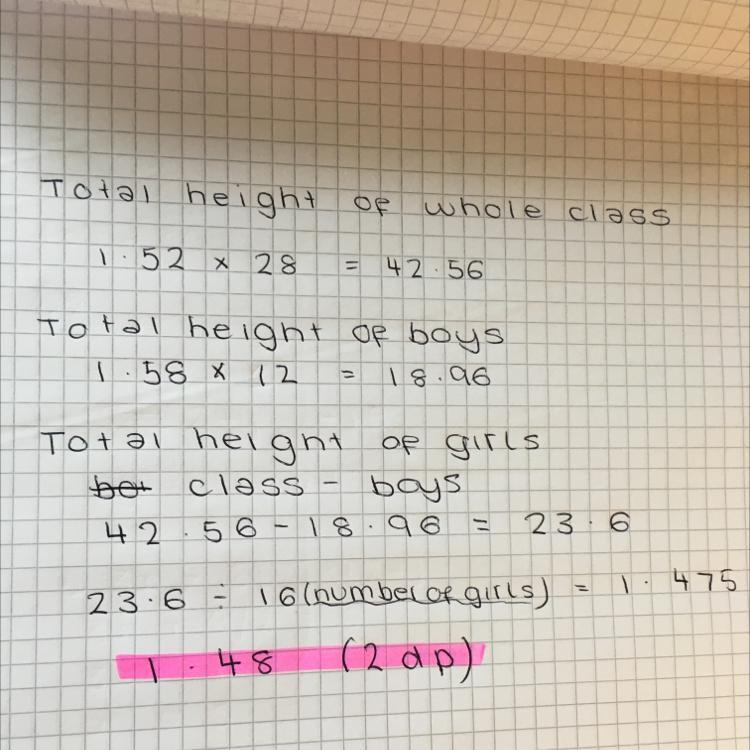 Total height of whole class
1.52 x 28 = 42.56
Total height of boys
1.58 x 12 = 18.96
Total height of girls
bot class - boys
42.56 - 18.96 = 23.6
23.6 ÷ 16 (number of girls) = 1.475
1.48 (2 dp)